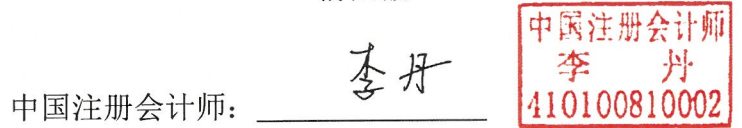 中国注册会计师：李丹
中国注册会计师
李 丹
410100810002